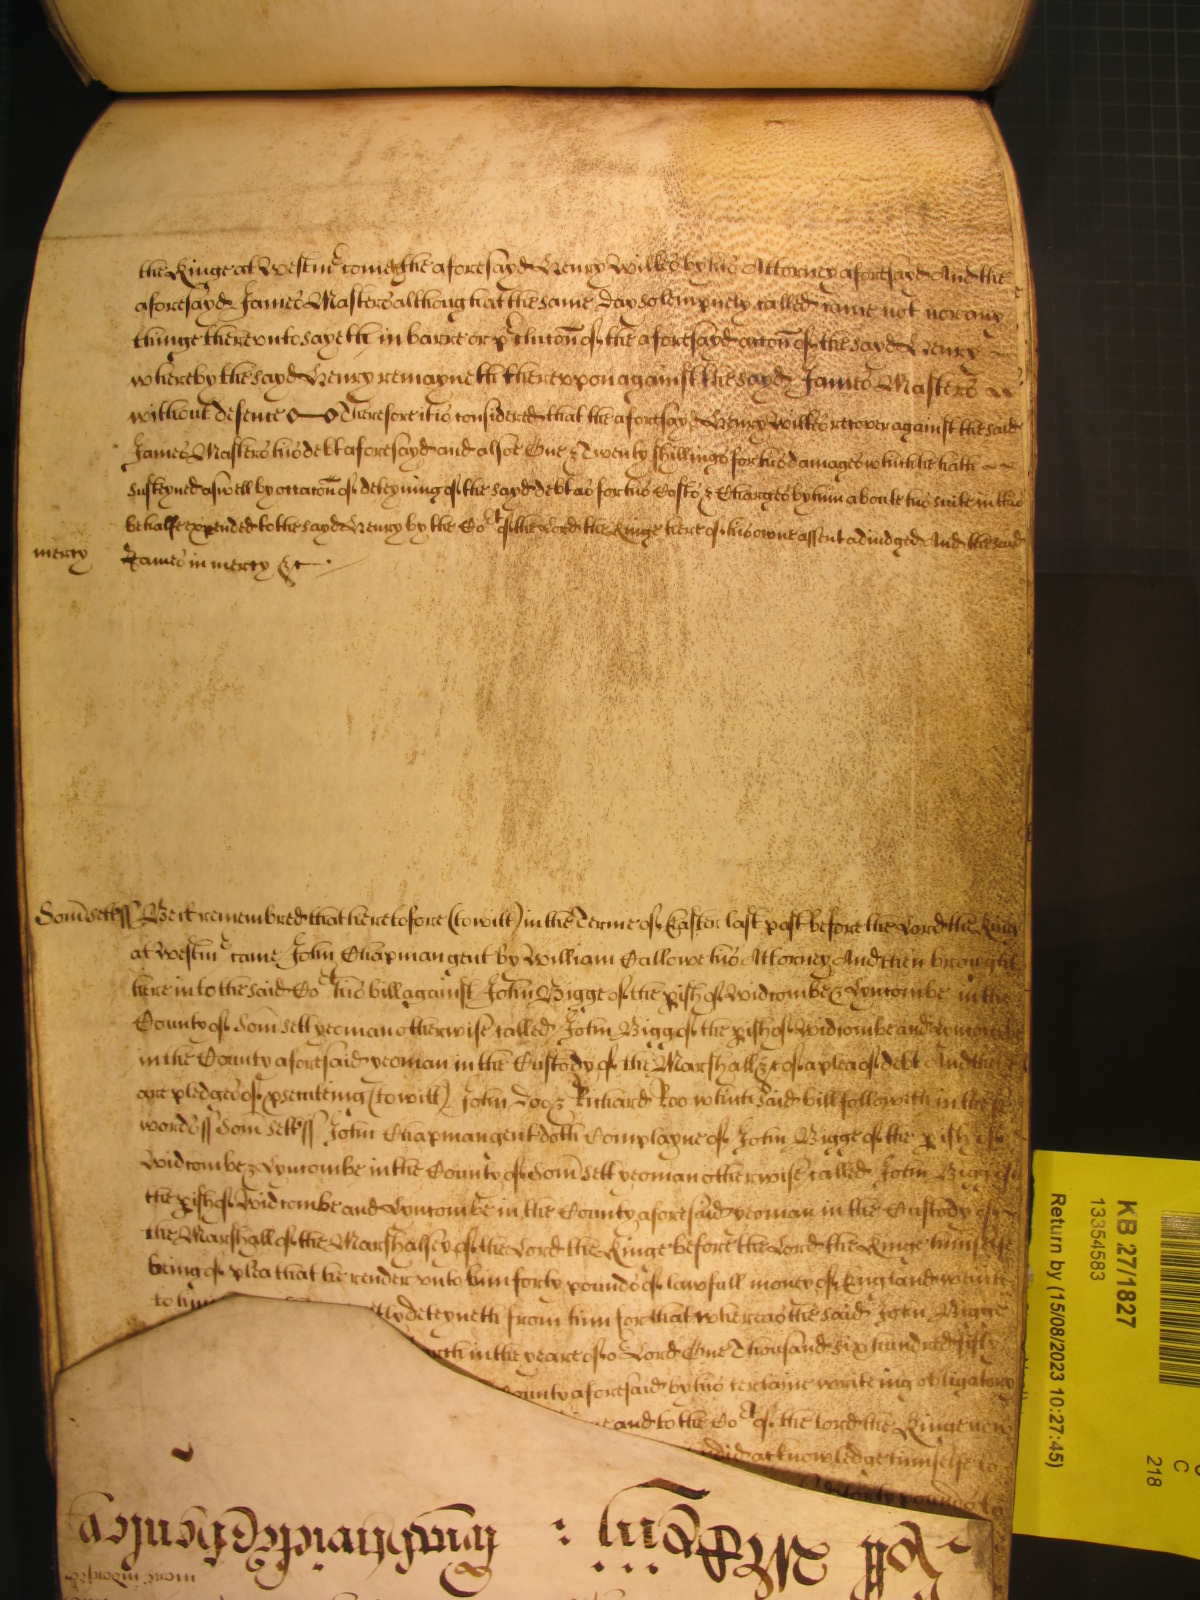 the Kinge at Westmr comes the aforesayd Henry Wilkes by his Attorney aforesayd And the
aforesayd James Masters although at the same day solempnely called came not nor any
thinge thereunto sayeth in barre or pclution of the aforesayd accon of the sayd Henry
whereby the sayd Henry remayneth thereuppon against the sayd James Masters
without defence Therefore it is considered that the aforesayd Henry Wilkes recover against the said
James Masters his debt aforesayd and alsoe One & Twenty shillings for his damages which he hath
susteyned aswell by occacon of deteyning of the sayd debt as for his Costs & Charges by him aboute his suite in this
behalfe expended to the sayd Henry by the Cort of the Lord the Kinge here of his owne assent adiudged And the said
mercy James in mercy &c
Somsett ss Be it remembred that heretofore (to witt) in the Terme of Easter last past before the Lord the King
at Westmr came John Chapman gent by William Callowe his Attorney And then brought
here into the said Cort his bill against John Bigge of the pish of Widcombe & Lyncombe in the
County of Somsett yeoman otherwise called John Bigg of the pish of Widcombe and Lyncombe
in the County aforesaid yeoman in the Custody of the Marshall &c of a plea of debt And there
are pledges of psecuteing (to witt) John Doo & Richard Roo which said bill followeth in these
words ss Somsett ss John Chapman gent doth Complayne of John Bigge of the pish of
Widcombe & Lyncombe in the County of Somsett yeoman otherwise called John Bigg of
the pish of Widcombe and Lyncombe in the County aforesaid yeoman in the Custody of
the Marshall of the Marshalsey of the Lord the Kinge before the Lord the Kinge himselfe
being of plea that he render unto him forty pounds of lawfull money of England which
to him deteyneth from him for that whereas the said John Bigge
in the yeare of or Lord One Thousand six hundred fifty
County aforesaid by his certaine writeing obligatory
and to the Cort of the lord the Kinge now
did acknowledge himselfe to
KB 27/1827
13354583
Return by (15/08/2023 10:27:45)
C
218